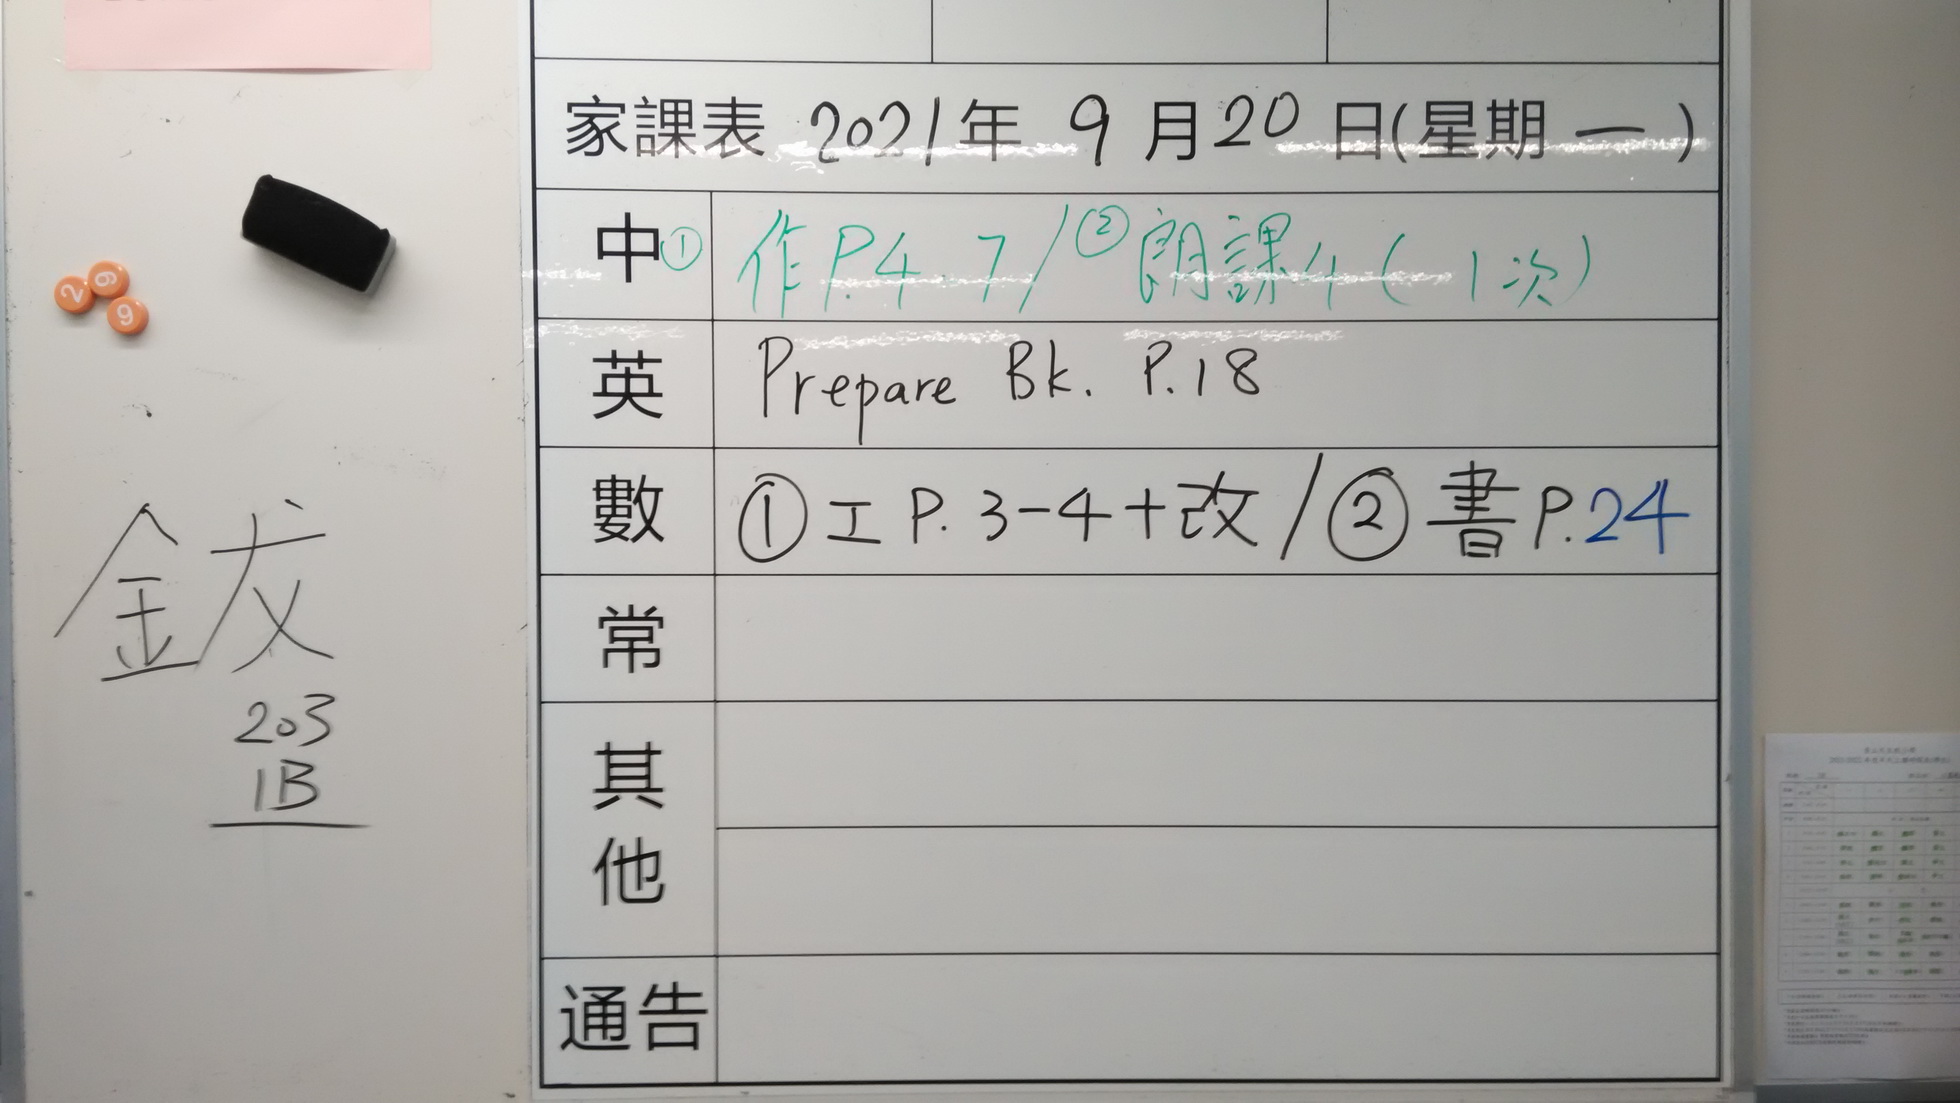 家課表 2021年 9月20日(星期一)
中① 作P.4-7/②朗課4(1次)
英 Prepare Bk. P.18
數 ①工P.3-4+改/②書P.24
常
其他
通告
2
9
6
鈸
203
1B